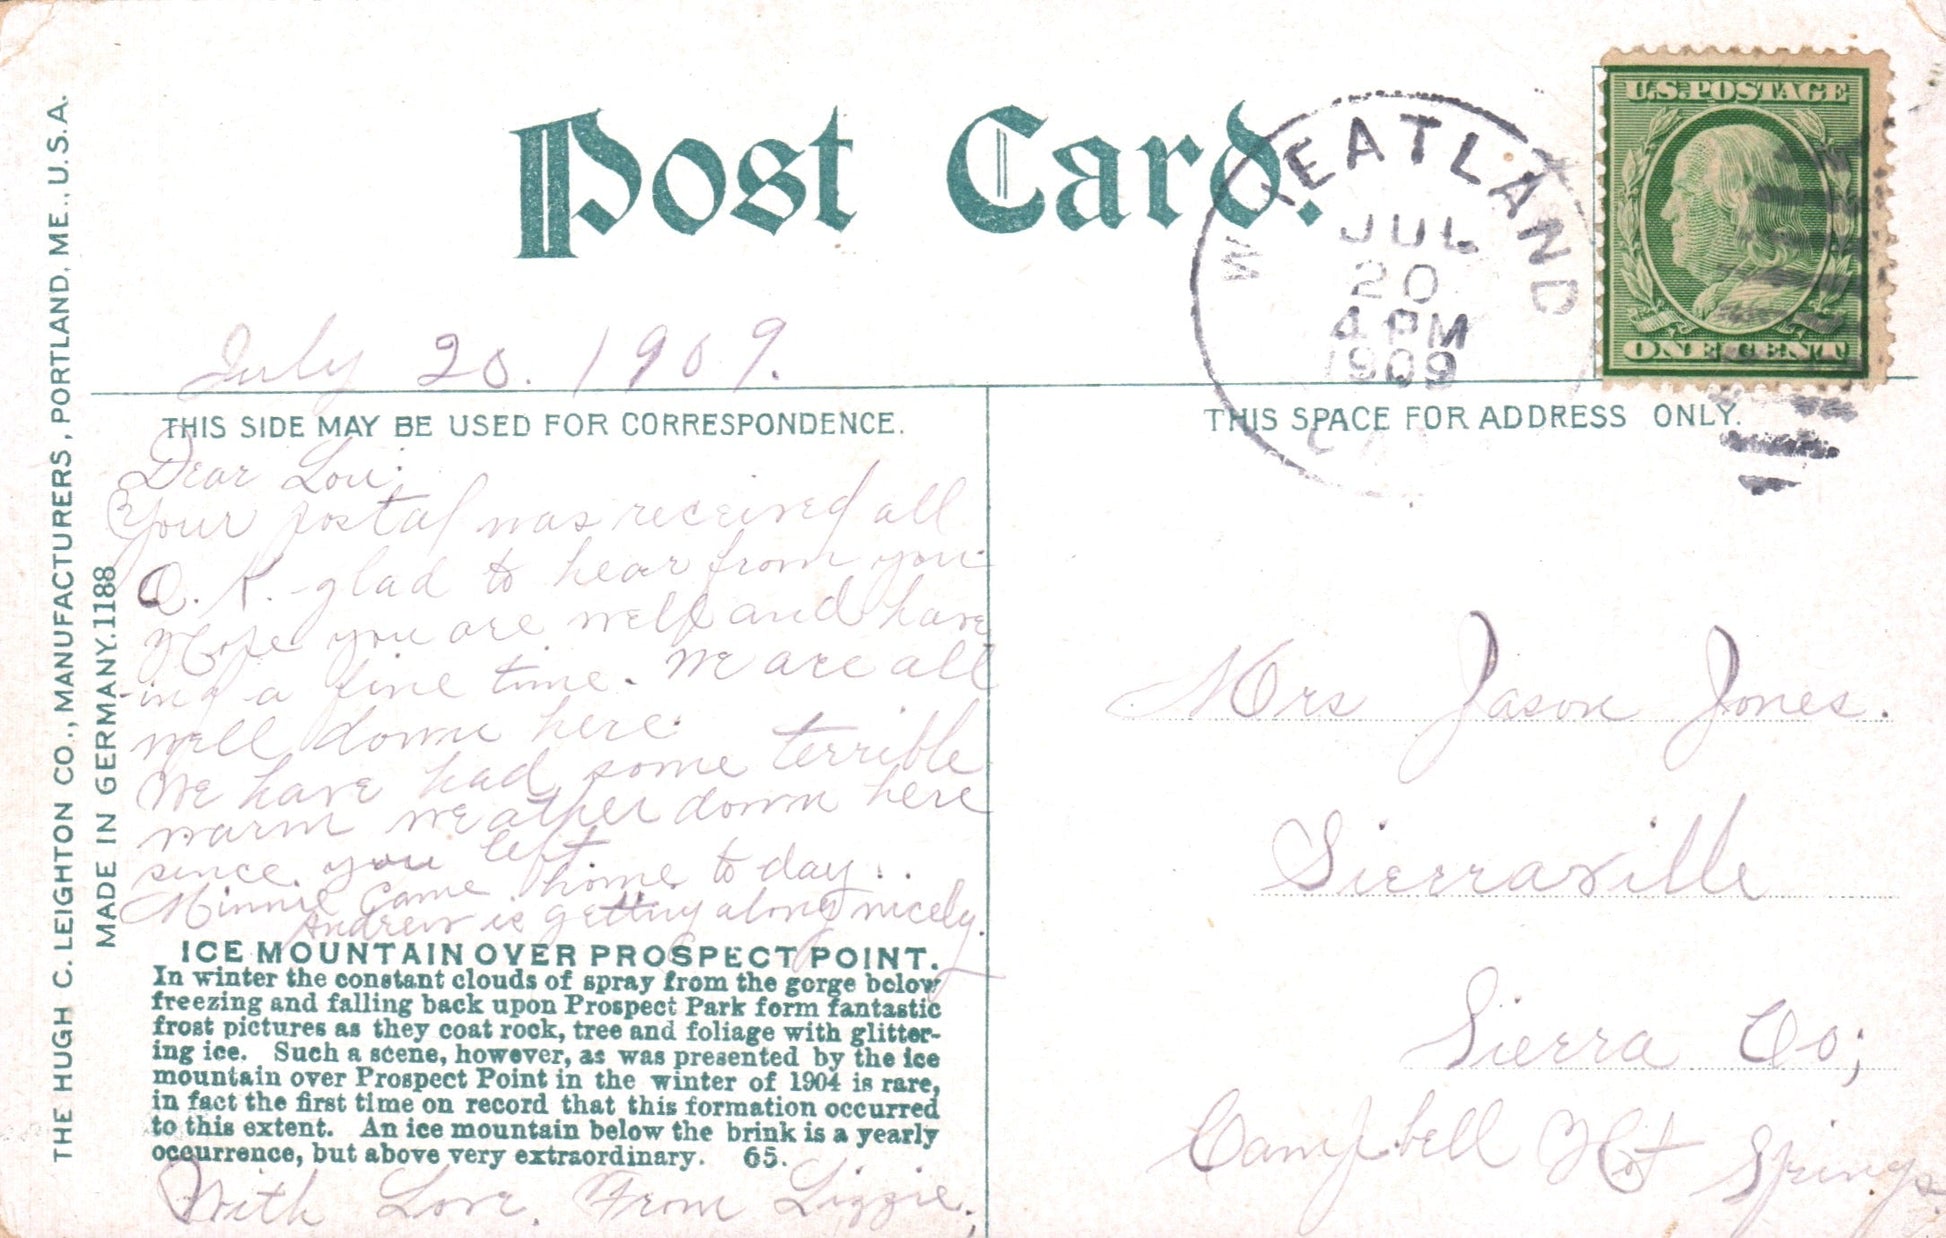 Post Card.
U.S. POSTAGE
ONE CENT
WHEATLAND
JUL
20
4 PM
1909
CAL
July 20. 1909.
THIS SIDE MAY BE USED FOR CORRESPONDENCE.
THIS SPACE FOR ADDRESS ONLY.
THE HUGH C. LEIGHTON CO., MANUFACTURERS, PORTLAND, ME., U.S.A.
MADE IN GERMANY. 1188
Dear Lou:
Your postal was received all
O. K. - glad to hear from you
Hope you are well and hav
-ing a fine time. We are all
well down here.
We have had some terrible
warm weather down here
since you left
Minnie came home to day..
Andrew is getting along nicely.
ICE MOUNTAIN OVER PROSPECT POINT.
In winter the constant clouds of spray from the gorge below
freezing and falling back upon Prospect Park form fantastic
frost pictures as they coat rock, tree and foliage with glitter-
ing ice. Such a scene, however, as was presented by the ice
mountain over Prospect Point in the winter of 1904 is rare,
in fact the first time on record that this formation occurred
to this extent. An ice mountain below the brink is a yearly
occurrence, but above very extraordinary. 65.
With Love. From Lizzie.
Mrs Jason Jones.
Sierraville
Sierra Co;
Campbell Hot Springs